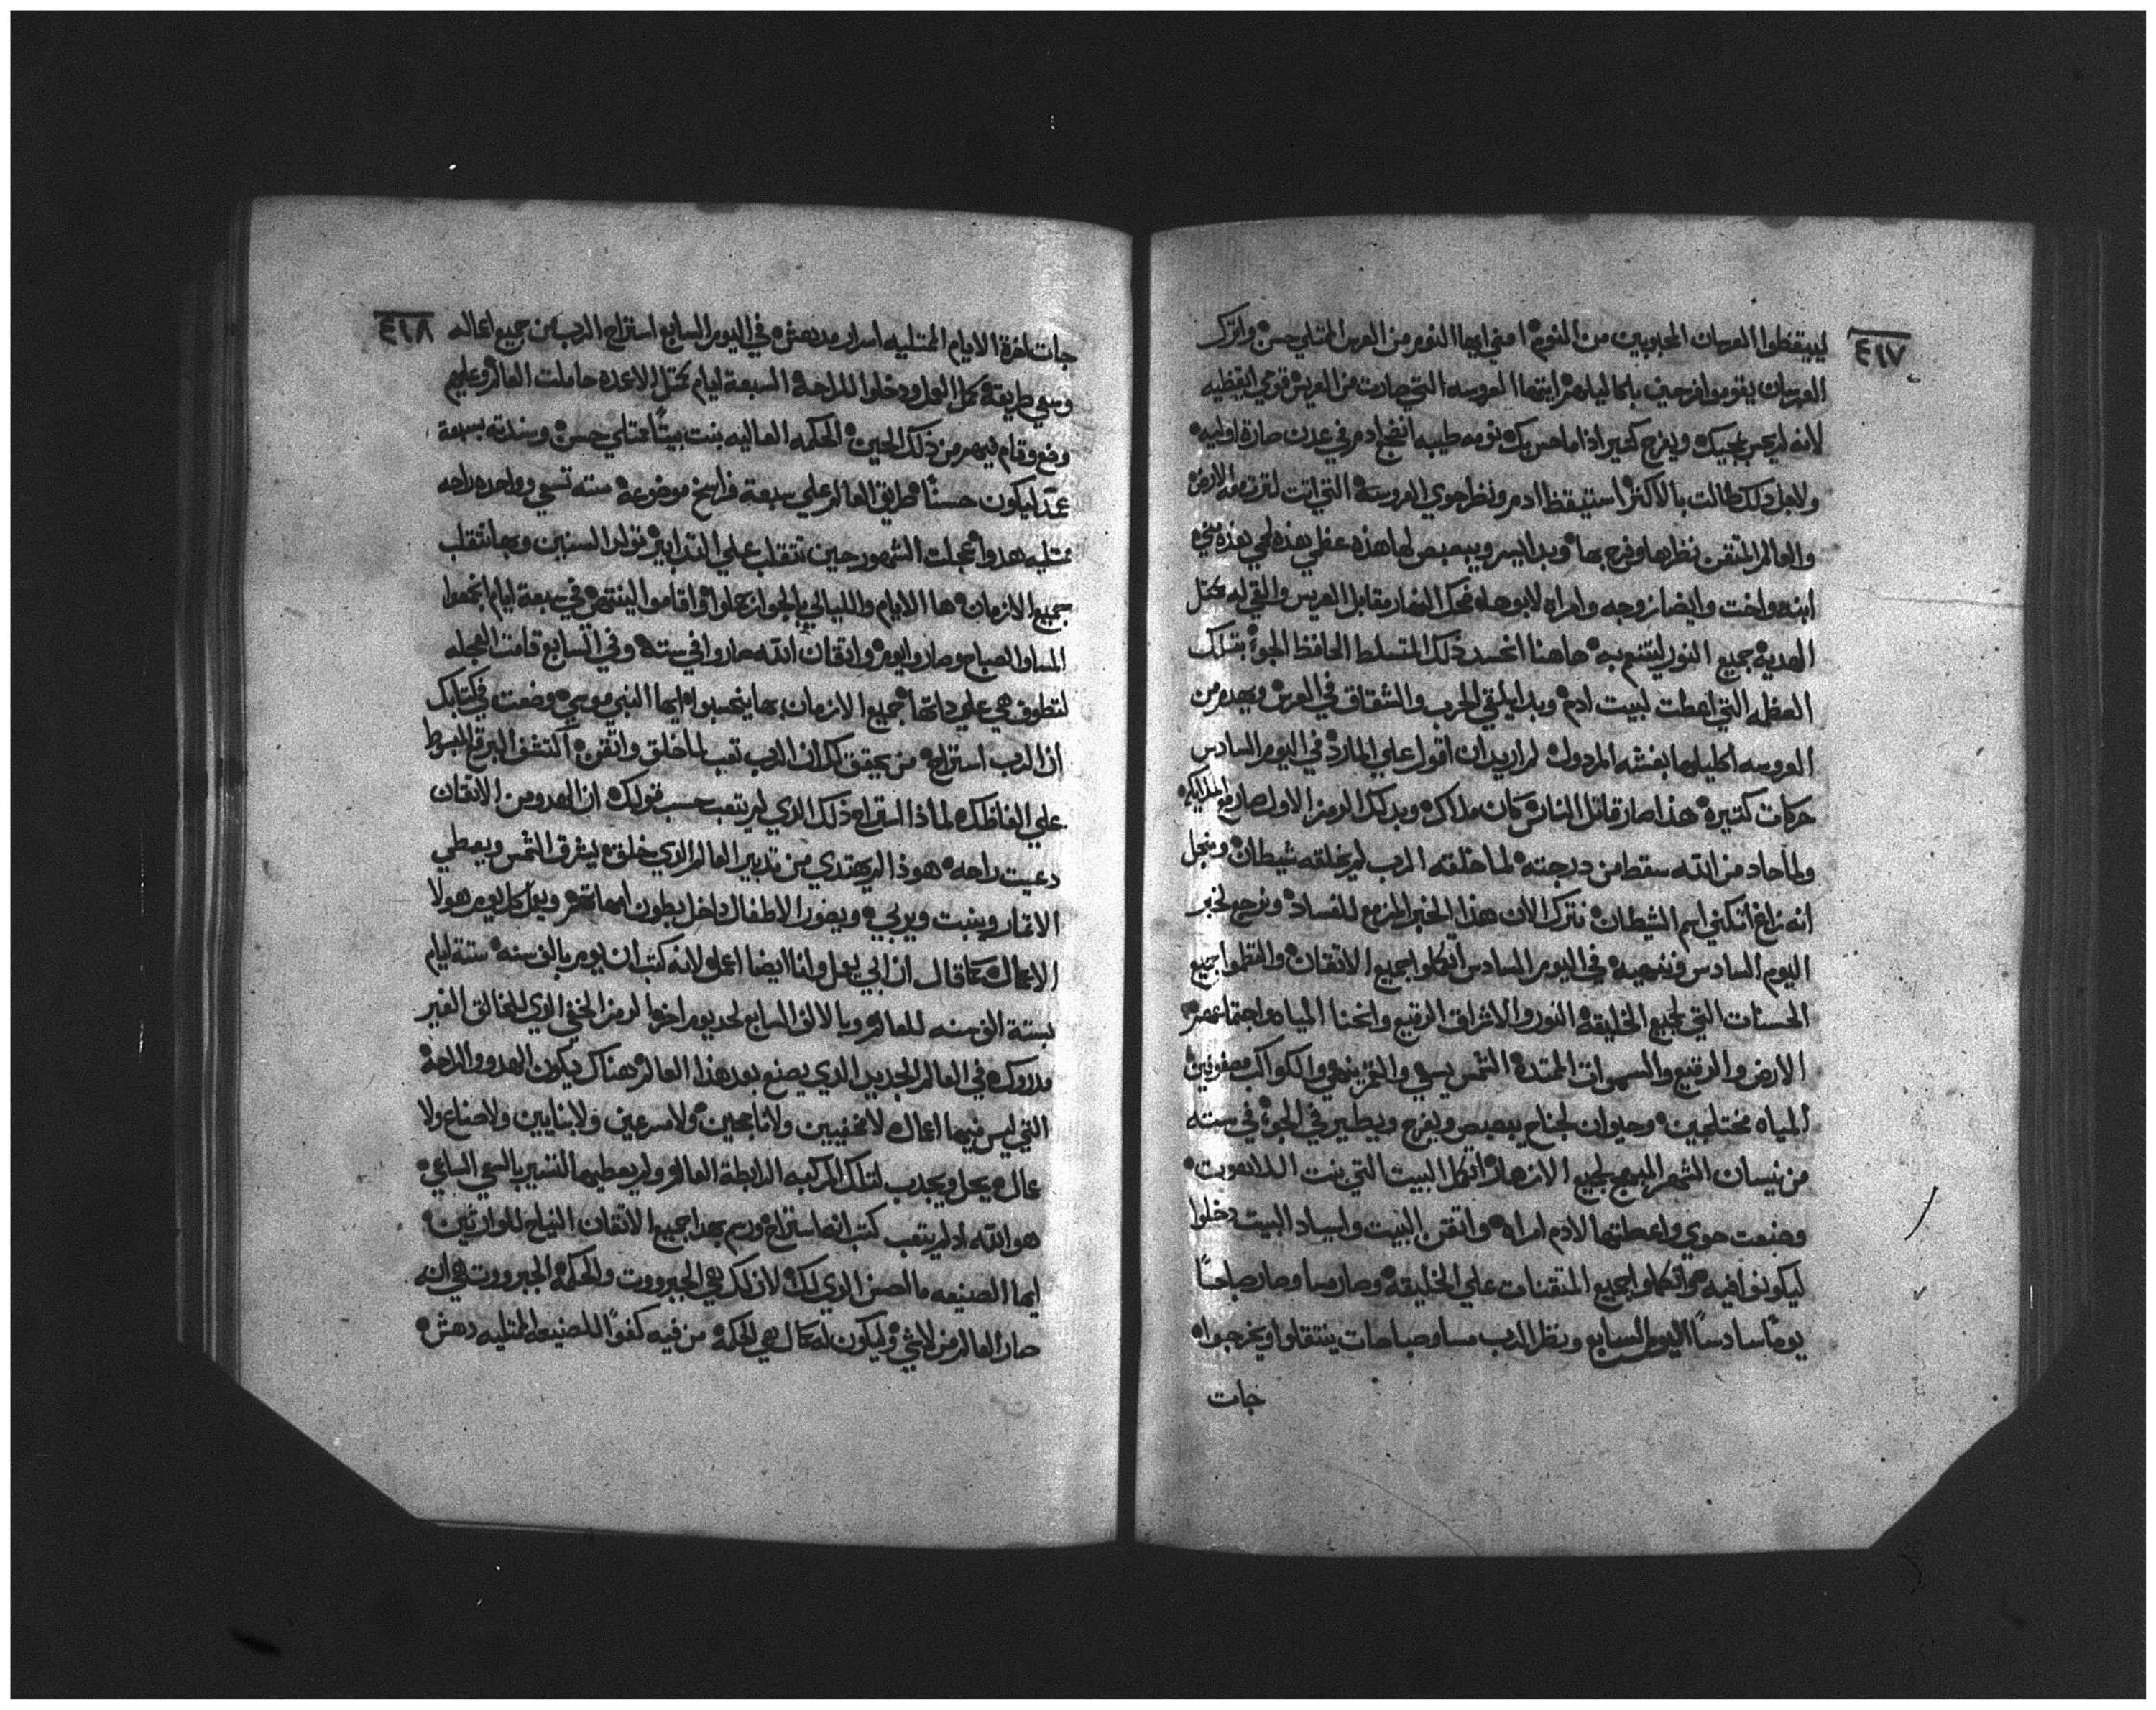 ٤١٧
ليبيقظوا العرسان المحبوبين من النوم امضي ايها النوم من العرس الممتلي حسن واترك
العرسان يقوموا فرحين باكاليلهم ايتها العروسه التي صارت من العريس قومي ايقظيه
لانه لم يحس بمجيك ويفرح كثير اذا ما حس بك نومه طيبه انضجع ادم في عدن صارة اوليه
ولاجل ذلك طالت بالاكثر استيقظ ادم ونظر حوي العروسة التي اتت لترث معه الارض
والعالم المتقن نظرها وفرح بها وبدا يسر ويبصبص لها هذه عظمي هذه لحمي هذه مني
ابنه واخت وايضا زوجه وامراه لابوها ضحك النهار مقابل العريس والقي له مثل
الهدية جميع النور ليتنعم به هاهنا انحسد ذلك المتسلط الحافظ الجو بتلك
العظمه التي اعطت لبيت ادم وبدا يلقي الحرب والشقاق في العرس ويهدم من
العروسه اكليلها بغشه المردول لم اريد ان اقول علي المارد في اليوم السادس
حركات كتيره هذا صار قاتل الناس كان ملاك وبدلك الرمز الاول صار مع الملايكه
ولما حاد من الله سقط من درجته لما خلقه الرب لم يخلقه شيطان ومن اجل
انه زاغ اتكني اسم الشيطان نترك الان هذا الخبر المزمع للفساد ونرجع لخبر
اليوم السادس وننهيه في اليوم السادس اتكملوا جميع الاتقان والتظموا جميع
الحسنات التي لجميع الخليقة النور والاشراق الرقيع وانحنا المياه واجتماعهم
الارض والرقيع والسموات الممتدة الشمس يسعي والقمر ينمي والكواكب مصفوفين
المياه مختلجين وحيوان لجناح يبصبص ويفرح ويطير في الجو في سته
من نيسان الشهر المبهج لجميع الازهار اتكمل البيت التي بنت اللاهوت
وصنعت حوي واعطتها لادم امراه واتقن البيت واسياد البيت دخلوا
ليكونوا فيه واتكملوا جميع المتقنات علي الخليقة وصار مسا وصار صباحًا
يومًا سادسًا اليوم السابع ونظر الرب مسا وصباحات ينتقلوا ويخرجوا
جات
٤١٨
جات اخرة الايام الممتليه اسرار مدهشه في اليوم السابع استراح الرب من جميع اعماله
وسعي طريقة كمل العمل ودخلوا للراحة السبعة ايام مثل الاعمده حاملت العالم وعليهم
وضع وقام فيهم من ذلك الحين الحكمه العاليه بنت بيتًا ممتلي حسن وسندته بسبعة
عمد ليكون حسنًا طريق العالم علي سبعة فراسخ موضوعه سته تسعي وواحده راحه
ممتليه هدوا عجلت الشهور حين تتقلب علي التدابير تولد السنين وبها تتقلب
جميع الازمان ها الايام والليالي بالجواز كملوا واقاموا لينتهي في سبعة ايام اتجمعوا
المسا والصباح وصار وايوم واتقان الله صاروا في سته وفي السابع قامت العجله
لتطوف هي علي داتها جميع الازمان بها ينحسبوا ايها النبي موسي وضعت في كتابك
ان الرب استراح من يحقق لك ان الرب تعب لما خلق واتقن اكشف البرقع المبسوط
علي الفاظك لماذا استراح ذلك الذي لم يتعب حسب قولك ان الهدو من الاتقان
دعيت راحه هوذا لم يهتدي من تدبير العالم الذي خلقه يشرق الشمس ويعطي
الاتمار وينبت ويربي ويصور الاطفال داخل بطون امهاتهم ويعمل كل يوم هولا
الاعمال كما قال ان ابي يعمل وانا ايضا اعمل لانه كتب ان يوم بالف سنه ستة ايام
بستة الف سنه للعالم وبالالف السابع لحد يوم اخر الرمز الخفي الذي للخالق الغير
مدروك في العالم الجديد الذي يصنع بعد هذا العالم هناك يكون الهدو والراحة
التي ليس فيها اعمال لا مخفيين ولا ناجحين ولا مسرعين ولا بنايين ولا صناع ولا
عمال يحل ويجدب لتلك المركبه الرابطة العالم ولم يعطيها التسير بالسعي الساعي
هو الله اد لم يتعب كتب انه استراح ورسم بهذا جميع الاتقان النياح للوارثين
ايها الصنيعه ما احسن الذي لك لان لك هي الجبرووت والحكمة الجبرووت هي انه
صار العالم من لاشي وليكون له كمال هي الحكمة من فيه كفوًا للصنيعه الممتليه دهش